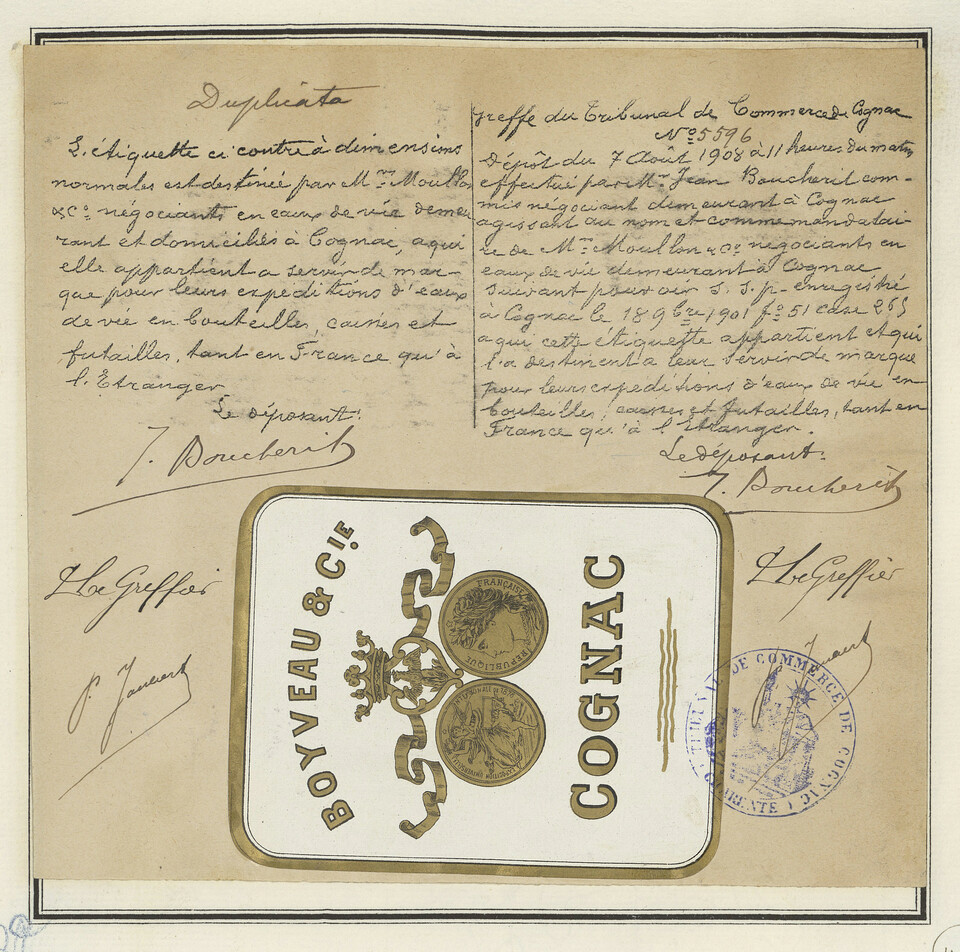 Duplicata
L'étiquette ci contre à dimensions
normales est destinée par Mrs Moullon
& Co négociants en eaux de vie demeu
rant et domiciliés à Cognac, a qui
elle appartient a servir de mar-
que pour leurs expeditions d'eaux
de vie en bouteilles, caisses et
futailles, tant en France qu'à
l'Etranger
Le déposant:
J. Boucherit
Greffe du Tribunal de Commerce de Cognac
No 5596
Dépôt du 7 Août 1908 à 11 heures du matin
effectué par Mr Jean Boucherit com-
mis négociant demeurant à Cognac
agissant au nom et comme mandatai-
re de Mrs Moullon & Co négociants en
eaux de vie demeurant à Cognac
suivant pouvoir s.s.p. enregistré
à Cognac le 18 9bre 1901 fo 51 case 265
a qui cette étiquette appartient et qui
l'a destinent a leur servir de marque
pour leurs expeditions d'eaux de vie en
bouteilles, caisses et futailles, tant en
France qu'à l'Etranger.
Le déposant:
J. Boucherit
Le Greffier
Le Greffier
BOYVEAU & CIE
RÉPUBLIQUE FRANÇAISE
EXPOSITION UNIVERSELLE INTERNATIONALE DE 1878
COGNAC
TRIBUNAL DE COMMERCE DE COGNAC (CHARENTE)